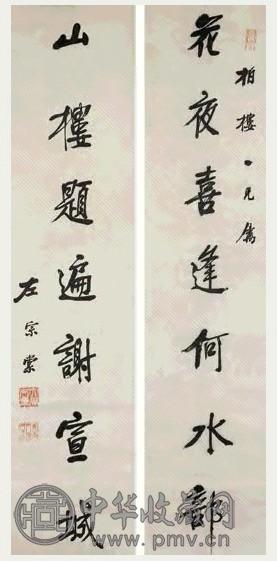 柏樓兄
花夜喜逢何水部
山樓題遍謝宣城
左宗棠
中华收藏网
www.pmv.cn